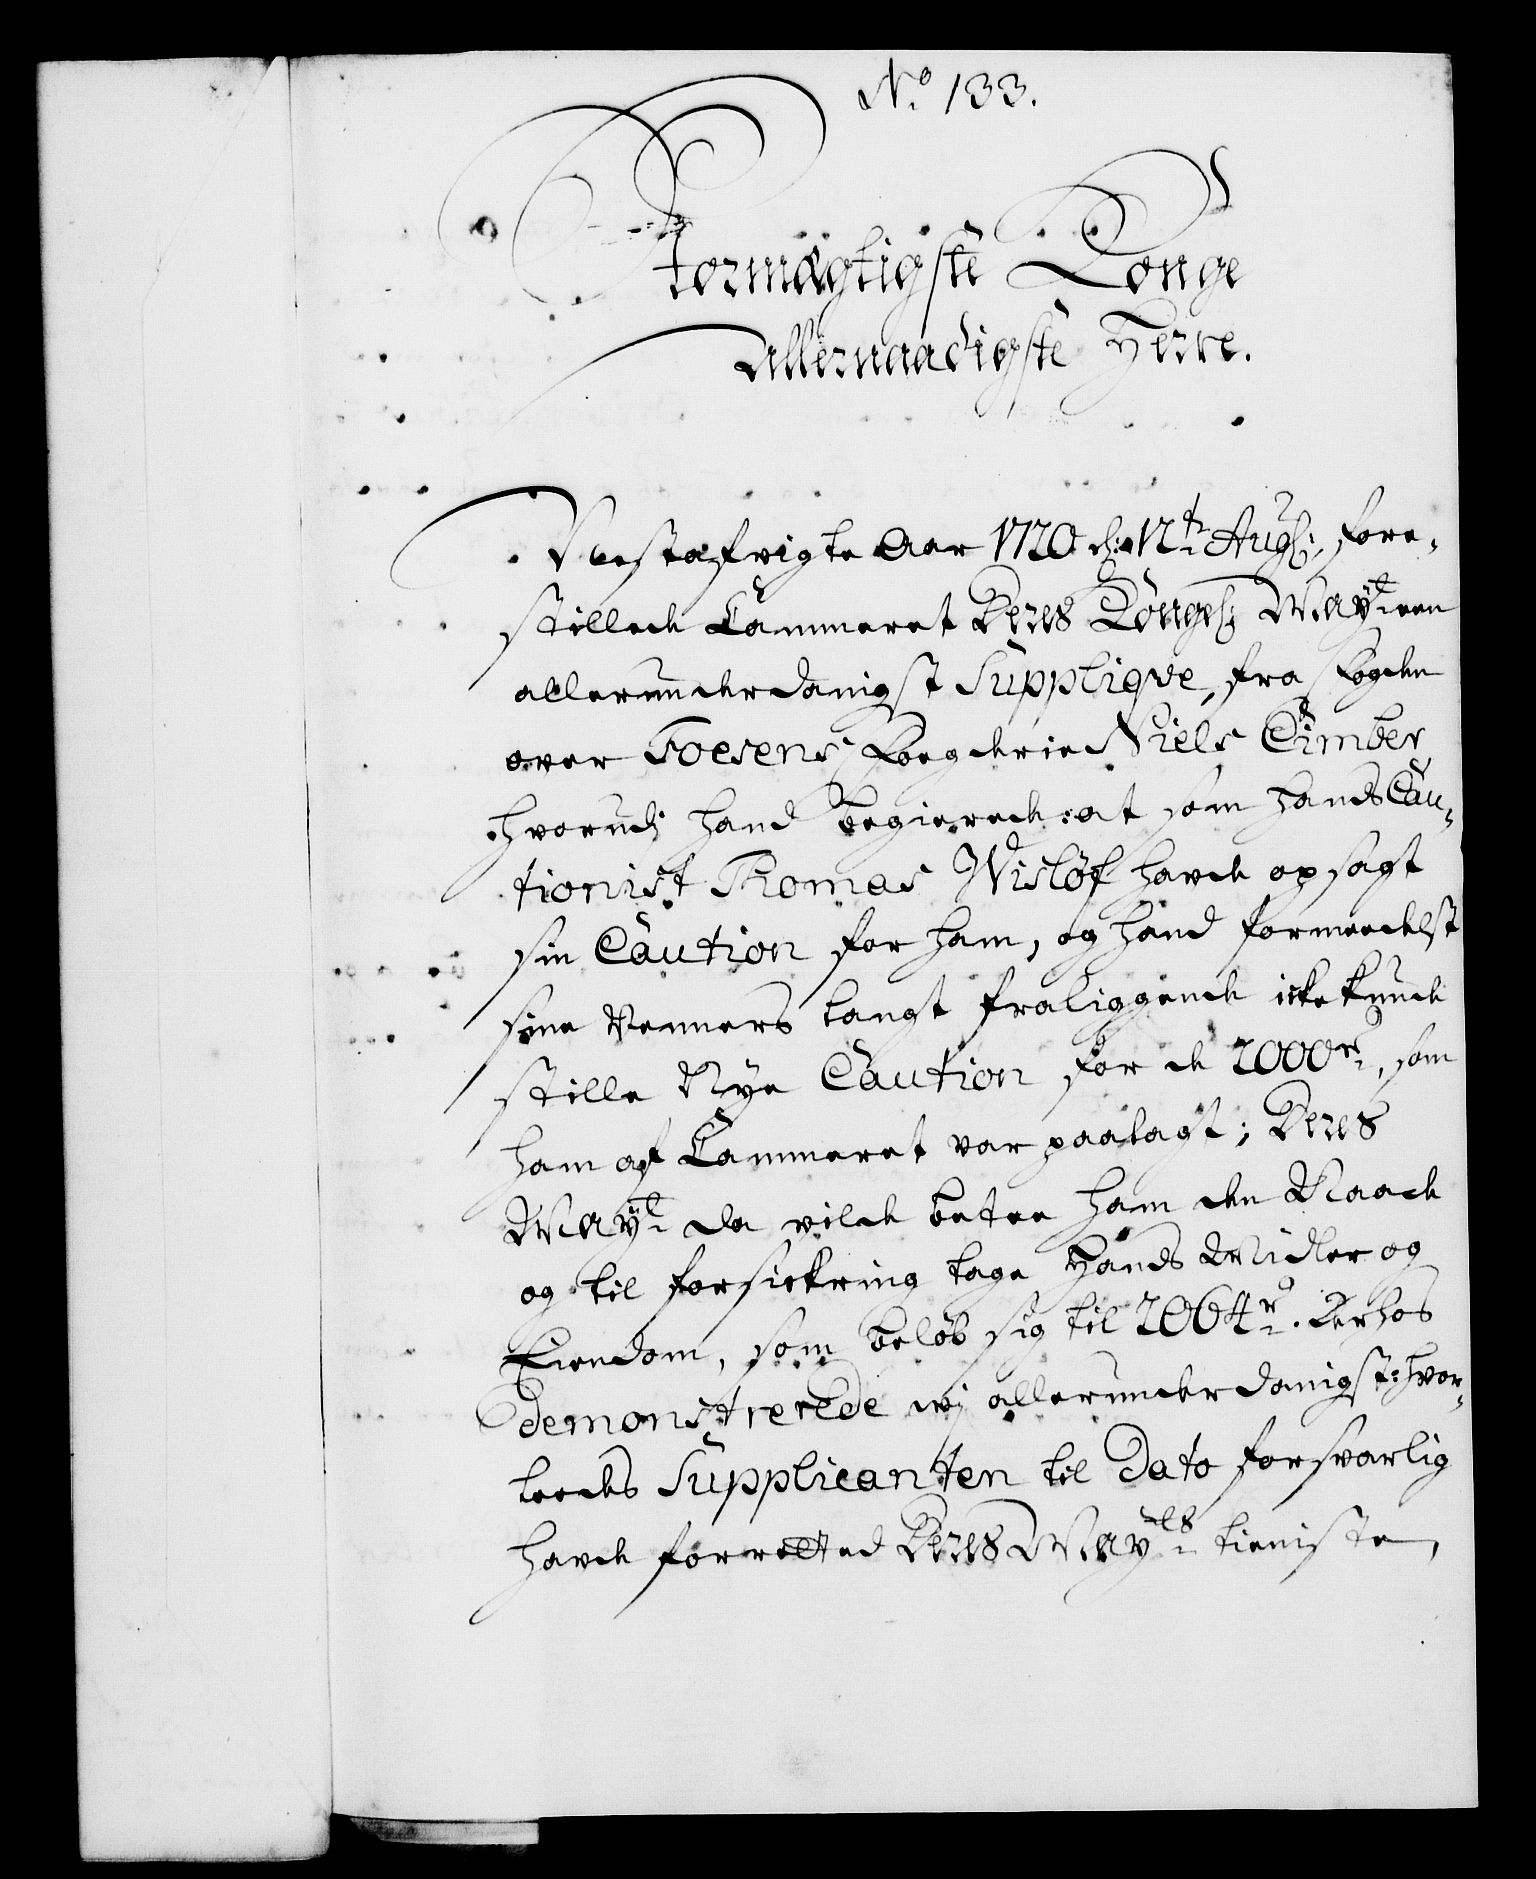 No 133.
Stormægtigste Konge
Allernaadigste Herre.
Nestafvigte Aar 1720 d: 12te Augs: fore-
stillede Cammeret Deres Kongel: Mayt een
allerunderdanigst Supplique, fra Fogden
over Foesens Fogderie Niels Cimber
hvorudj hand begierede: at som hands Cau-
tionist Thomas Wisløf hafde opsagt
sin Caution for ham, og hand formedelst
sine Venners langt fraliggende icke kunde
stille Nye Caution for de 2000 r, som
ham af Cammeret var paalagt; Deres
Mayt da vilde betee ham den Naade
og til forsickring tage Hands Midler og
Eiendom, som beløb sig til 2064 r. Derhos
demonstrerede wj allerunderdanigst: hvor-
leedes Supplicanten til Dato forsvarlig
hafde forretted Deres Mayts tieniste,